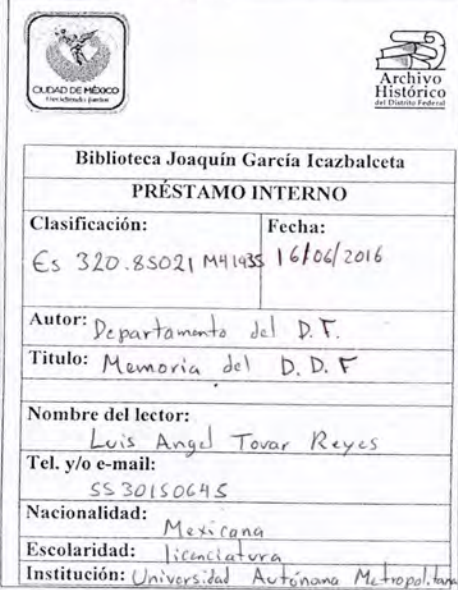 CIUDAD DE MÉXICO
Decidiendo juntos
Archivo
Histórico
del Distrito Federal
Biblioteca Joaquín García Icazbalceta
PRÉSTAMO INTERNO
Clasificación:
Es 320.85021 M41935
Fecha:
16/06/2016
Autor: Departamento del D.F.
Titulo: Memoria del D.D.F
Nombre del lector:
Luis Angel Tovar Reyes
Tel. y/o e-mail:
5530150645
Nacionalidad:
Mexicana
Escolaridad: licenciatura
Institución: Universidad Autónoma Metropolitana